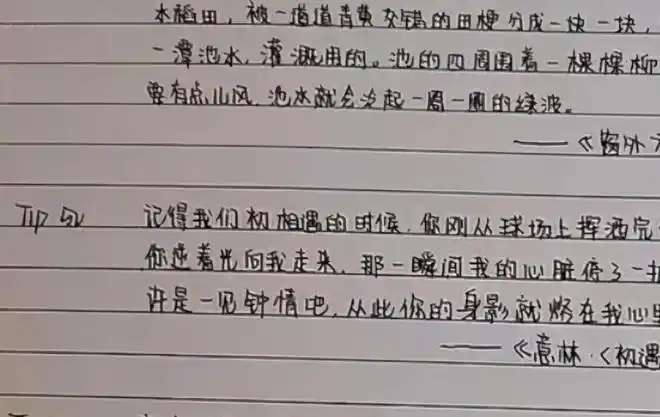 水稻田,被一道道青黄交错的田埂分成一块一块,
一潭池水,灌溉用的。池的四周围着一棵棵柳
要有点儿风,池水就会泛起一圈一圈的绿波。
——《窗外
Tip 52 记得我们初相遇的时候,你刚从球场上挥洒完
你逆着光向我走来,那一瞬间我的心脏停了一拍
许是一见钟情吧,从此你的身影就烙在我心里
——《意林·〈初遇